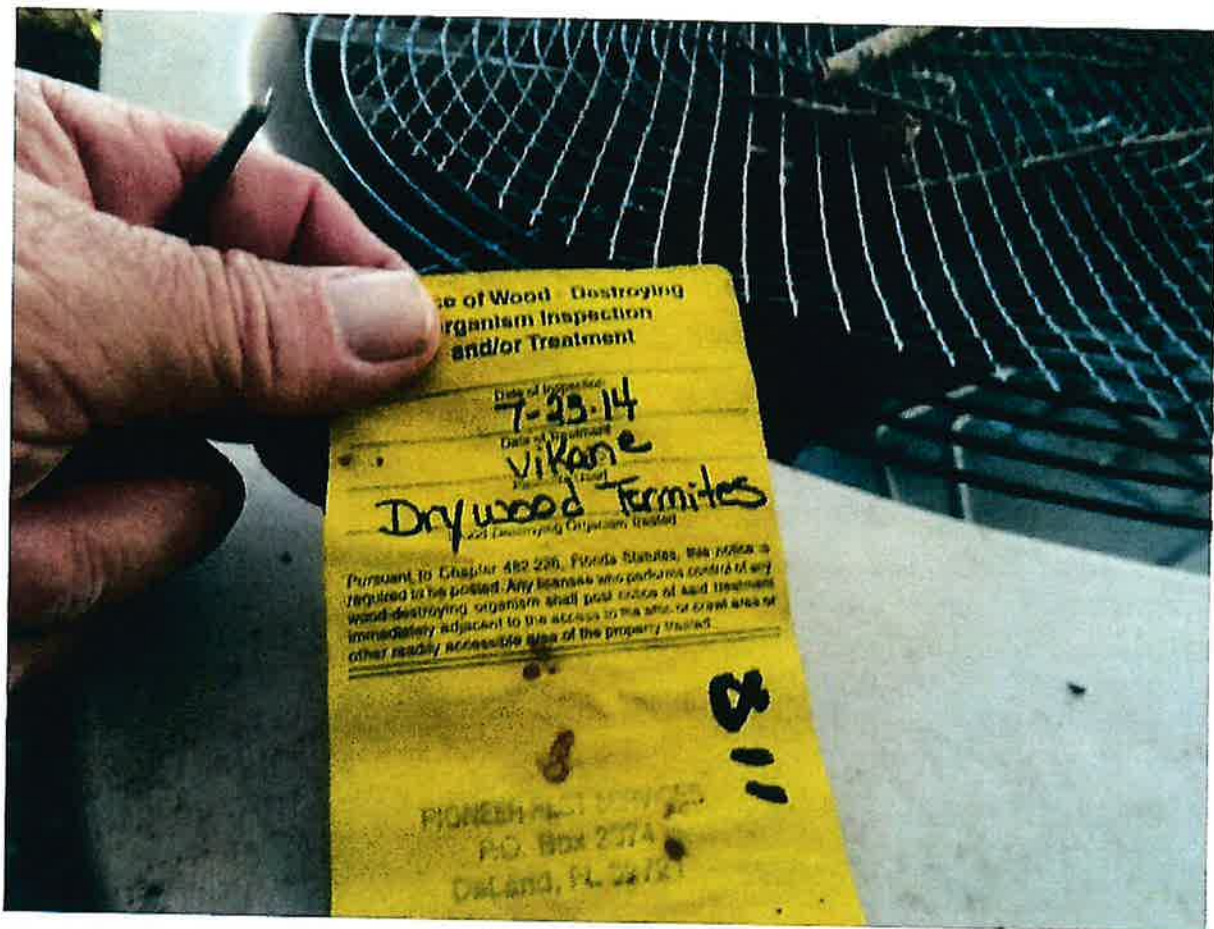 e of Wood - Destroying
rganism Inspection
and/or Treatment
Date of Inspection
7-23-14
Date of Treatment
Vikane
Drywood Termites
Wood Destroying Organism Treated
Pursuant to Chapter 482.226, Florida Statutes, this notice is
required to be posted. Any licensee who performs control of any
wood-destroying organism shall post notice of said treatment
immediately adjacent to the access to the attic or crawl area or
other readily accessible area of the property treated.
PIONEER PEST SERVICES
P.O. Box 2374
DeLand, FL 32721